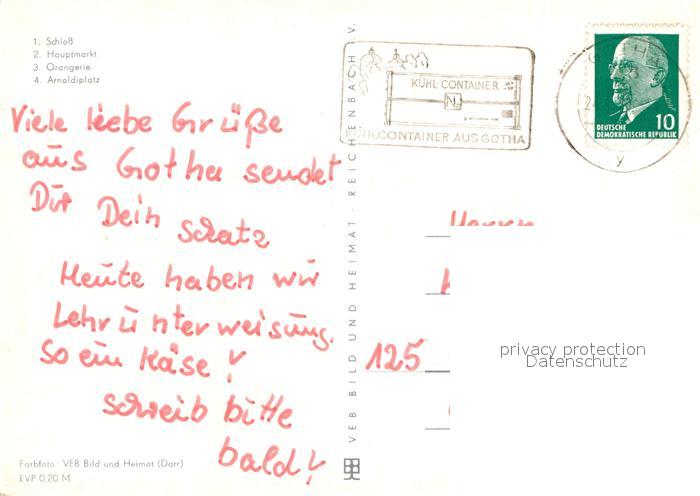 1. Schloß
2. Hauptmarkt
3. Orangerie
4. Arnoldiplatz
Viele liebe Grüße
aus Gotha sendet
Dir Dein
Schatz
Heute haben wir
Lehrunterweisung.
So ein Käse!
Schreib bitte
bald!
Farbfoto: VEB Bild und Heimat (Darr)
EVP 0,20 M
VEB BILD UND HEIMAT · REICHENBACH I. V.
KÜHL-CONTAINER
CONTAINER AUS GOTHA
10
DEUTSCHE
DEMOKRATISCHE REPUBLIK
y
Herrn
125
privacy protection
Datenschutz